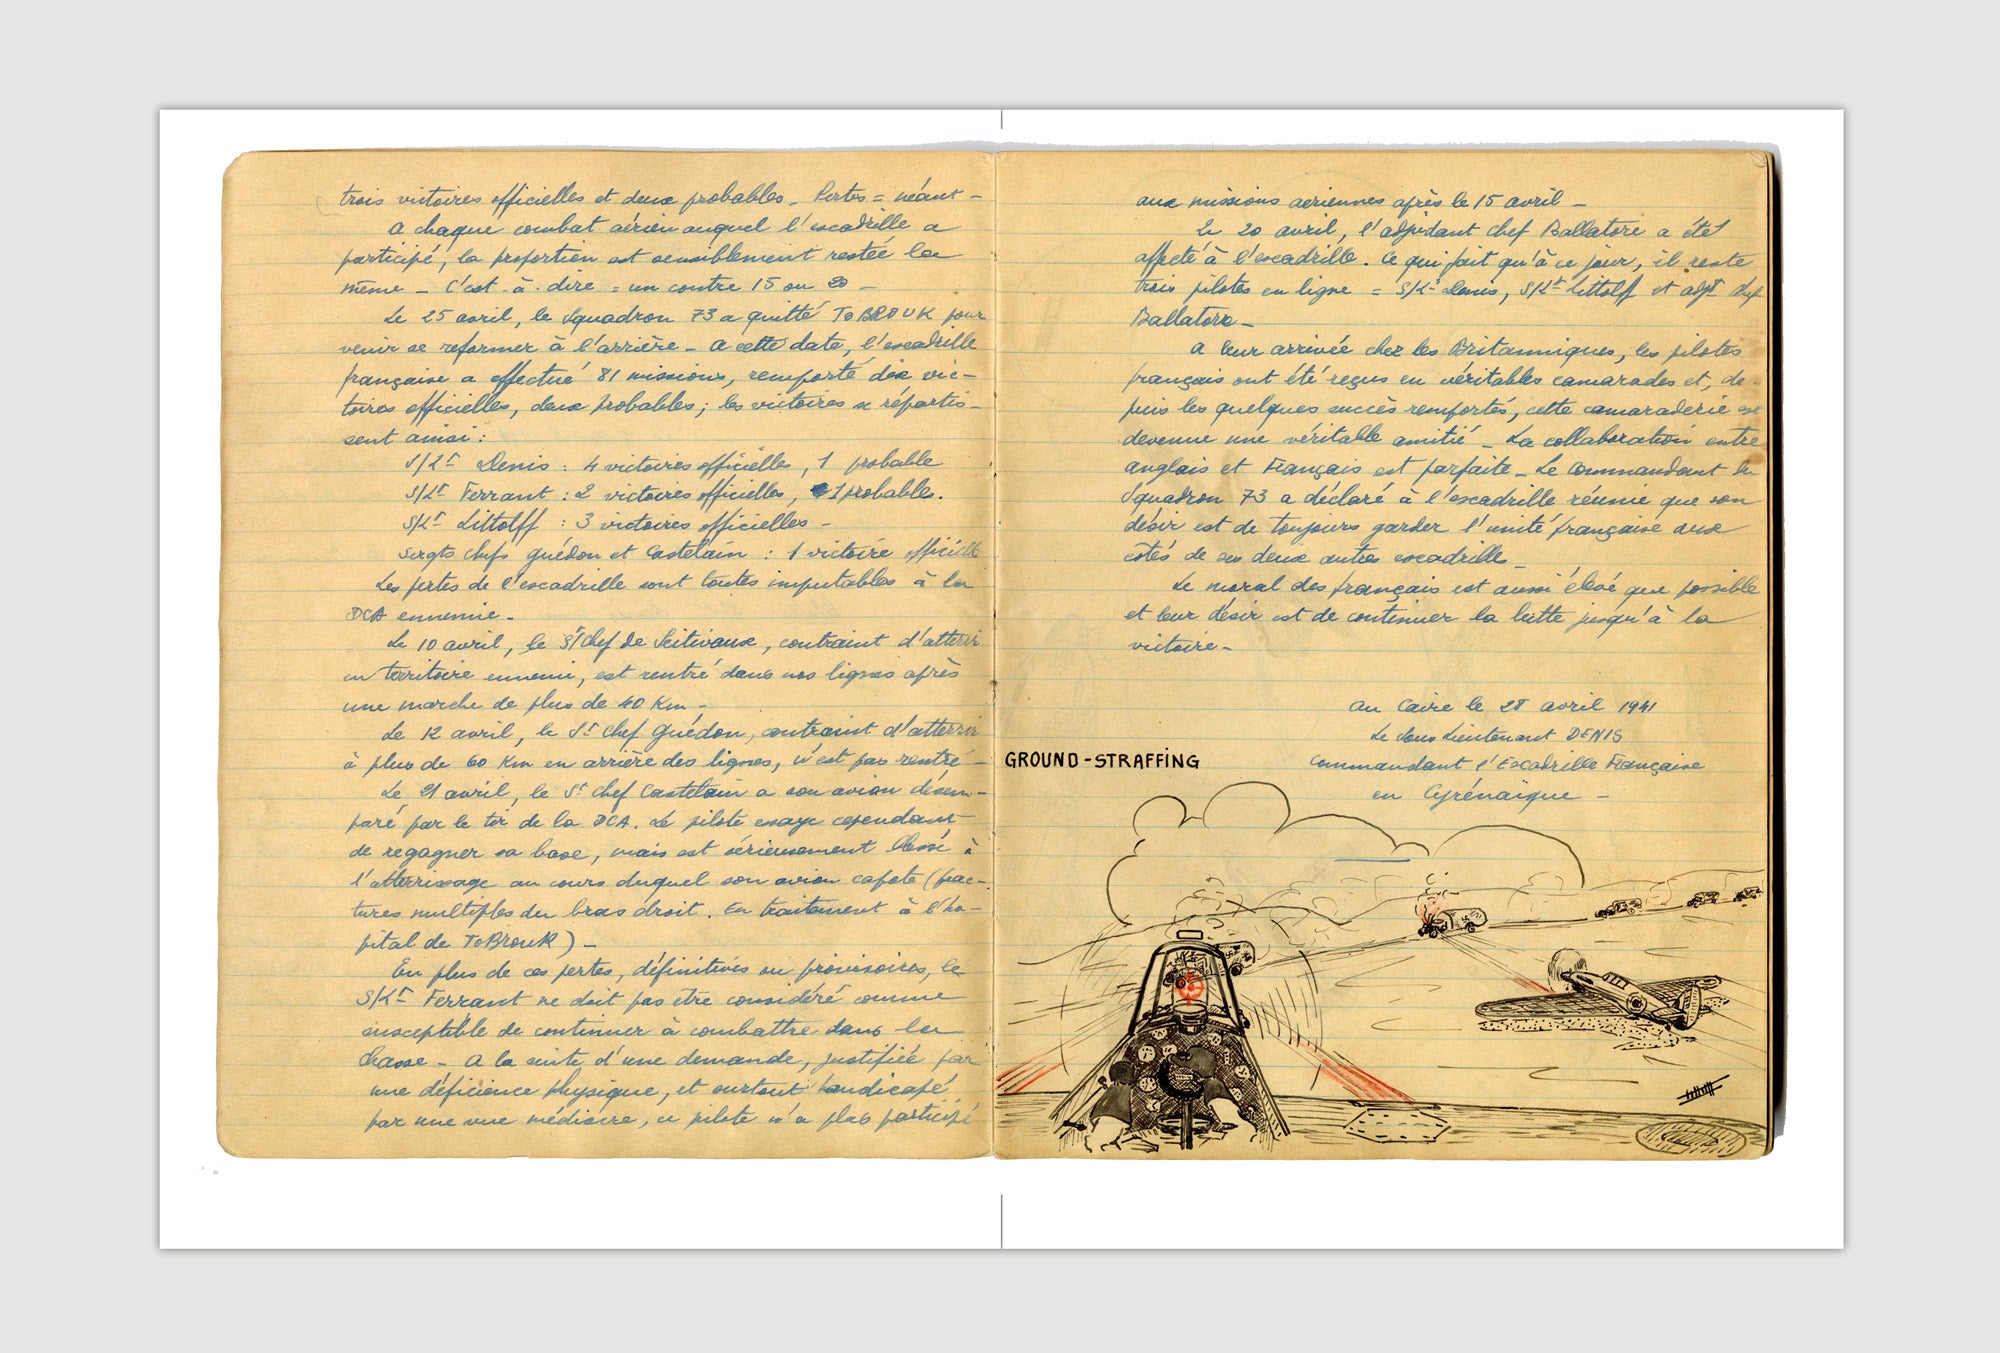 trois victoires officielles et deux probables_ Pertes = néant -
A chaque combat aérien auquel l'escadrille a
participé, la proportion est sensiblement restée la
même _ C'est-à-dire = un contre 15 ou 20 _
Le 25 avril, le Squadron 73 a quitté ToBROUK pour
venir se reformer à l'arrière_ A cette date, l'escadrille
française a effectué 81 missions, remporté dix vic-
toires officielles, deux probables; les victoires se répartis-
sent ainsi:
S/Lt Denis : 4 victoires officielles, 1 probable
S/Lt Ferrant : 2 victoires officielles, 1 probables.
S/Lt Littolff : 3 victoires officielles _
Sergts chefs Guédon et Castelain : 1 victoire officielle
Les pertes de l'escadrille sont toutes imputables à la
DCA ennemie.
Le 10 avril, le St chef de Scitivaux, contraint d'atterrir
en territoire ennemi, est rentré dans nos lignes après
une marche de plus de 40 Km_
Le 12 avril, le St chef Guédon, contraint d'atterrir
à plus de 60 Km en arrière des lignes, n'est pas rentré
Le 21 avril, le St chef Castelain a son avion désem-
paré par le tir de la DCA. Le pilote essaye cependant
de regagner sa base, mais est sérieusement blessé à
l'atterrissage au cours duquel son avion capote (frac-
tures multiples du bras droit. En traitement à l'ho-
pital de ToBrouk)_
En plus de ces pertes, définitives ou provisoires, le
S/Lt Ferrant ne doit pas être considéré comme
susceptible de continuer à combattre dans la
chasse_ A la suite d'une demande, justifiée par
une déficience physique, et surtout handicapé
par une vue médiocre, ce pilote n'a plus participé
aux missions aériennes après le 15 avril_
Le 20 avril, l'adjudant chef Ballatore a été
affecté à l'escadrille. Ce qui fait qu'à ce jour, il reste
trois pilotes en ligne = S/Lt Denis, S/Lt Littolff et adjt chef
Ballatore_
A leur arrivée chez les Britanniques, les pilotes
français ont été reçus en véritables camarades et, de-
puis les quelques succès remportés, cette camaraderie est
devenue une véritable amitié_ La collaboration entre
anglais et Français est parfaite_ Le commandant du
Squadron 73 a déclaré à l'escadrille réunie que son
désir est de toujours garder l'unité française aux
côtés de ses deux autres escadrilles_
Le moral des français est aussi élevé que possible
et leur désir est de continuer la lutte jusqu'à la
victoire_
au Caire le 28 avril 1941
Le Sous Lieutenant DENIS
Commandant l'Escadrille Française
en Cyrénaïque_
GROUND-STRAFFING
Littolff